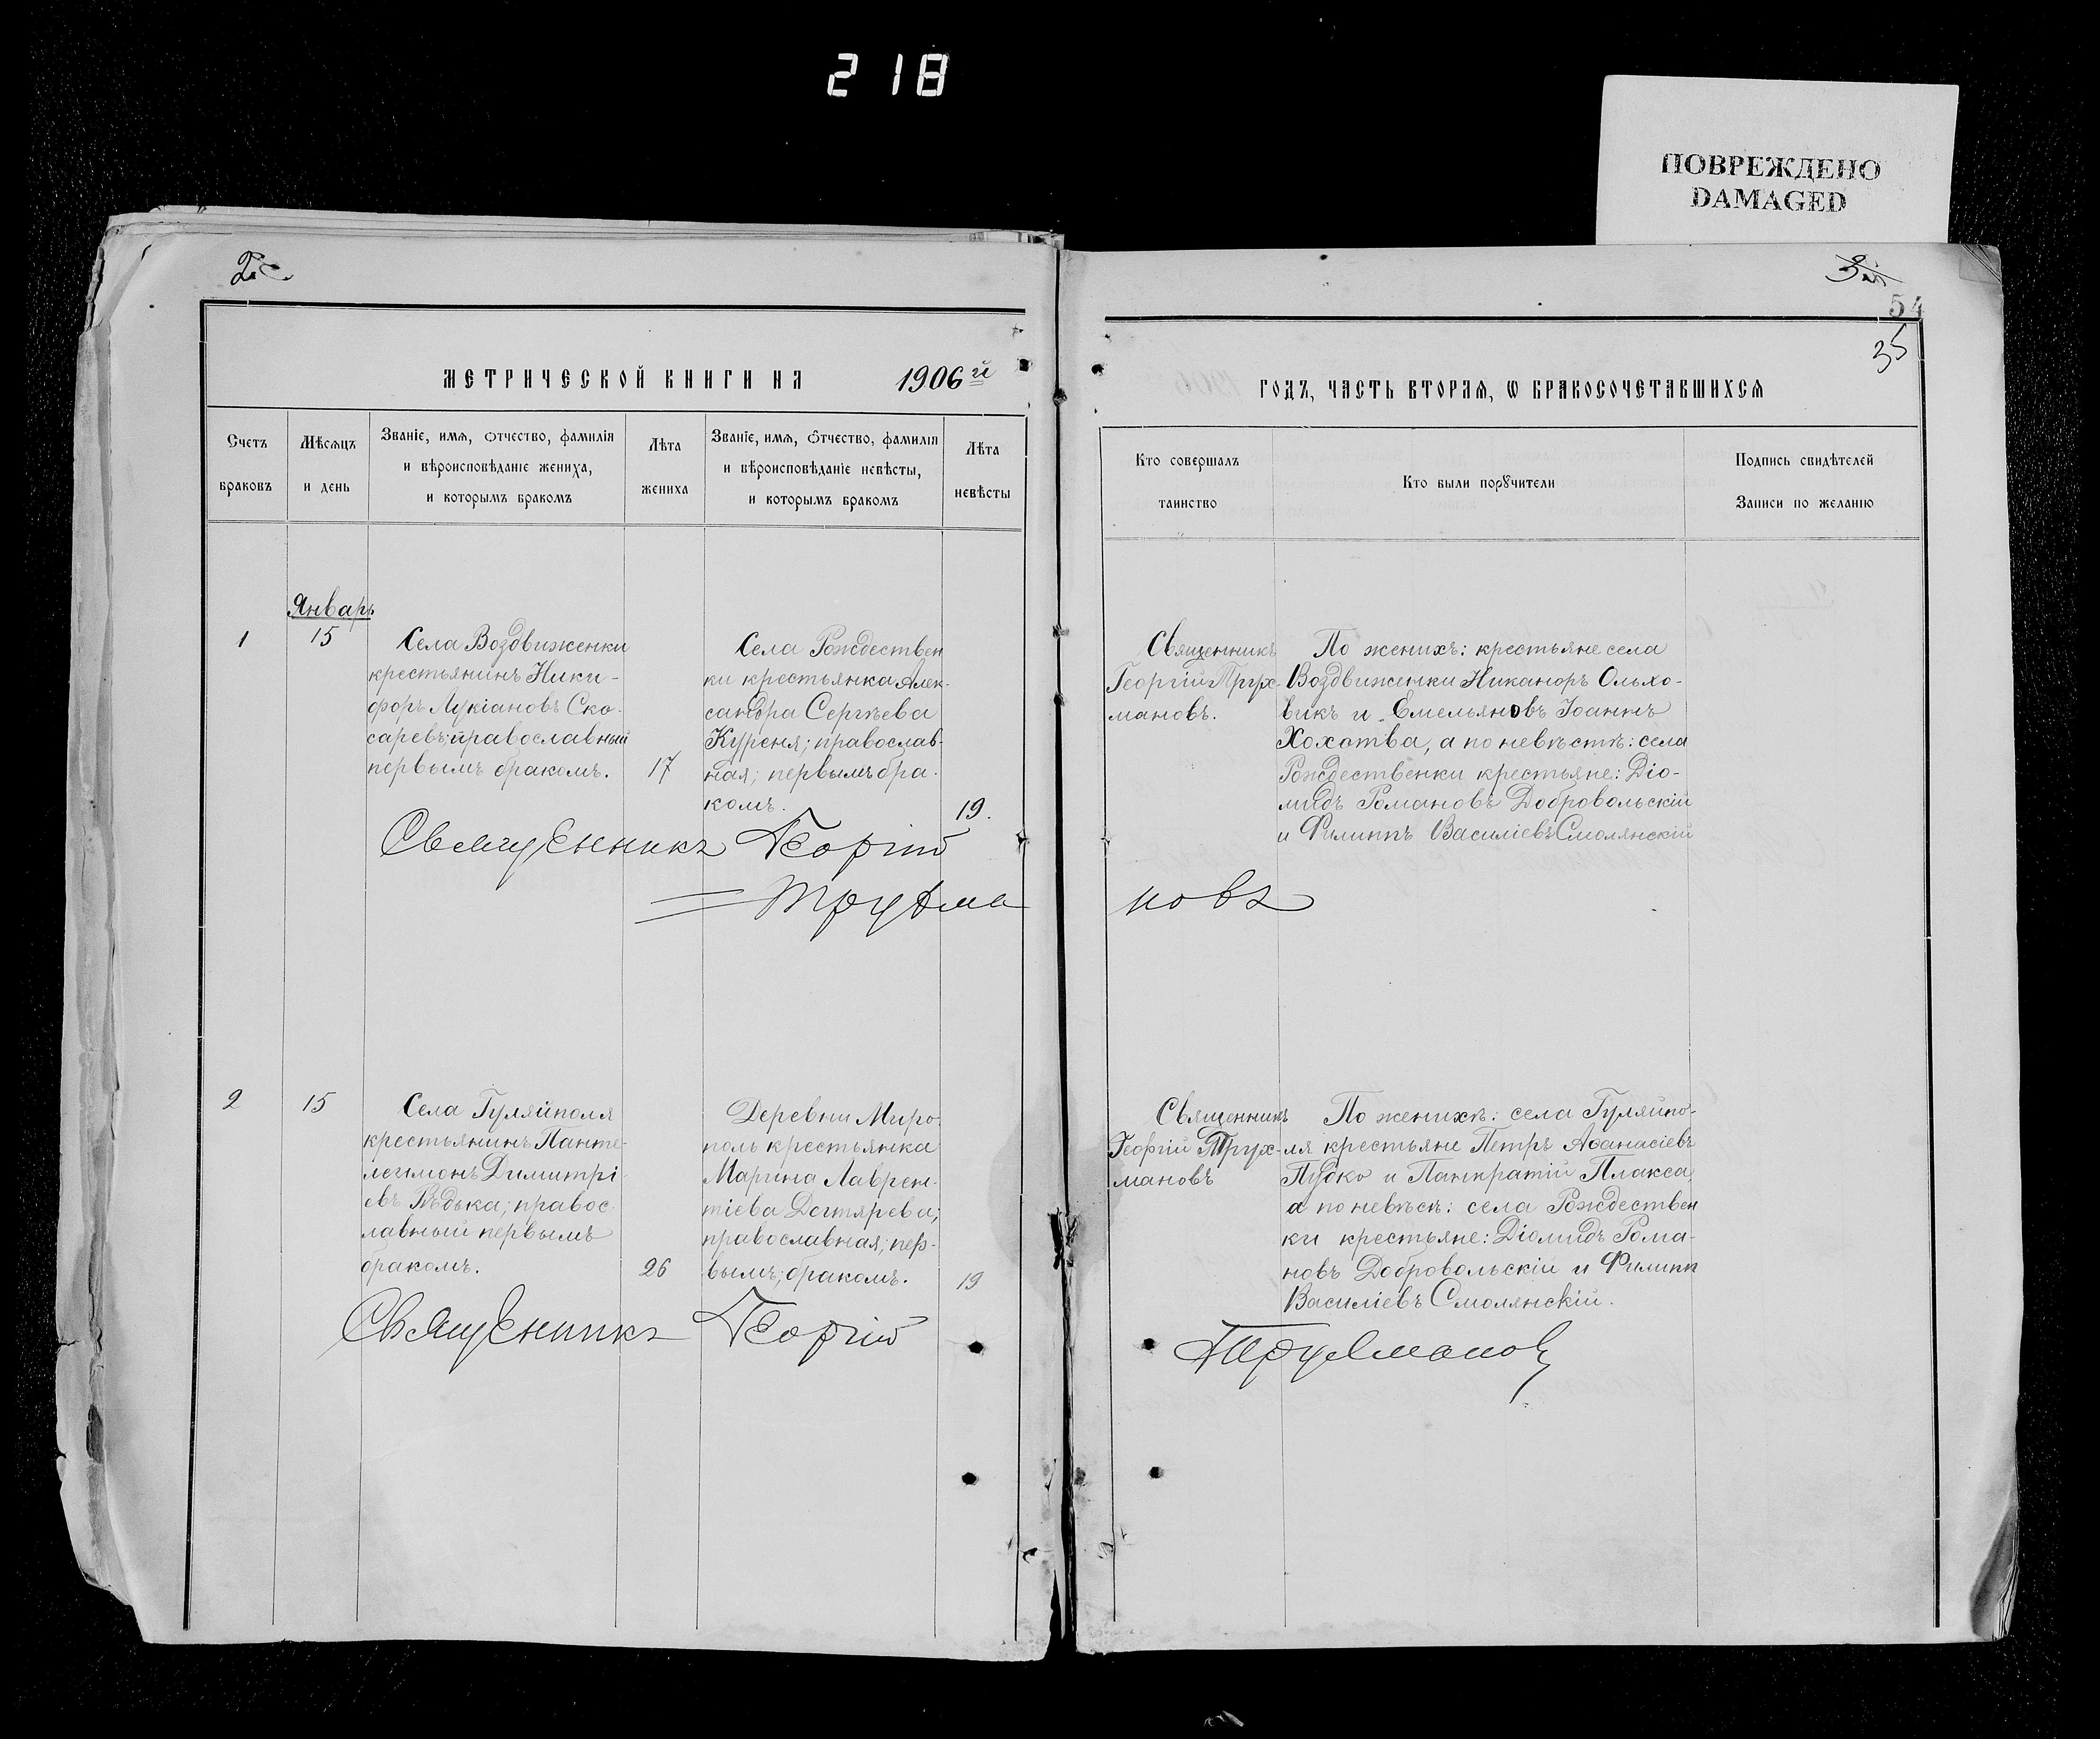 218
ПОВРЕЖДЕНО
DAMAGED
54
35
МЕТРИЧЕСКОЙ КНИГИ НА 1906й
Счетъ браковъ
Мѣсяцъ и день
Званіе, имя, отчество, фамилія
и вѣроисповѣданіе жениха,
и которымъ бракомъ
Лѣта жениха
Званіе, имя, отчество, фамилія
и вѣроисповѣданіе невѣсты,
и которымъ бракомъ
Лѣта невѣсты
ГОДЪ, ЧАСТЬ ВТОРАЯ, Ѡ БРАКОСОЧЕТАВШИХСЯ
Кто совершалъ
таинство
Кто были порꙋчители
Подпись свидѣтелей
Записи по желанію
Январь
1
15
Села Воздвиженки
крестьянинъ Ники-
форъ Лукіановъ Ско-
саревъ; православный
первымъ бракомъ.
17
Села Рождествен
ки крестьянка Алек-
сандра Сергѣева
Куреня; православ-
ная; первымъ бра-
комъ.
19.
Священникъ
Георгій Трух-
мановъ.
По женихѣ: крестьяне села
Воздвиженки Никаноръ Ольхо-
викъ и Емельяновъ Іоаннъ
Хохотва, а по невѣстѣ: села
Рождественки крестьяне: Діо-
мидъ Романовъ Добровольскій
и Филиппъ Василіевъ Смолянскій
Священникъ Георгій
Трухма новъ
2
15
Села Гуляйполя
крестьянинъ Панте-
леимонъ Димитрі-
евъ Рѣдька; правос-
лавный первымъ
бракомъ.
26
Деревни Миро-
поль крестьянка
Марина Лаврен-
тіева Дегтярева;
православная; пер-
вымъ; бракомъ.
19
Священникъ
Георгій Трух-
мановъ
По женихѣ: села Гуляйпо-
ля крестьяне Петръ Аѳанасіевъ
Пудко и Панкратій Плакса,
а по невѣсѣ: села Рождествен
ки крестьяне: Діомидъ Рома-
новъ Добровольскій и Филипп
Василіевъ Смолянскій.
Священникъ Георгій
Трухмановъ